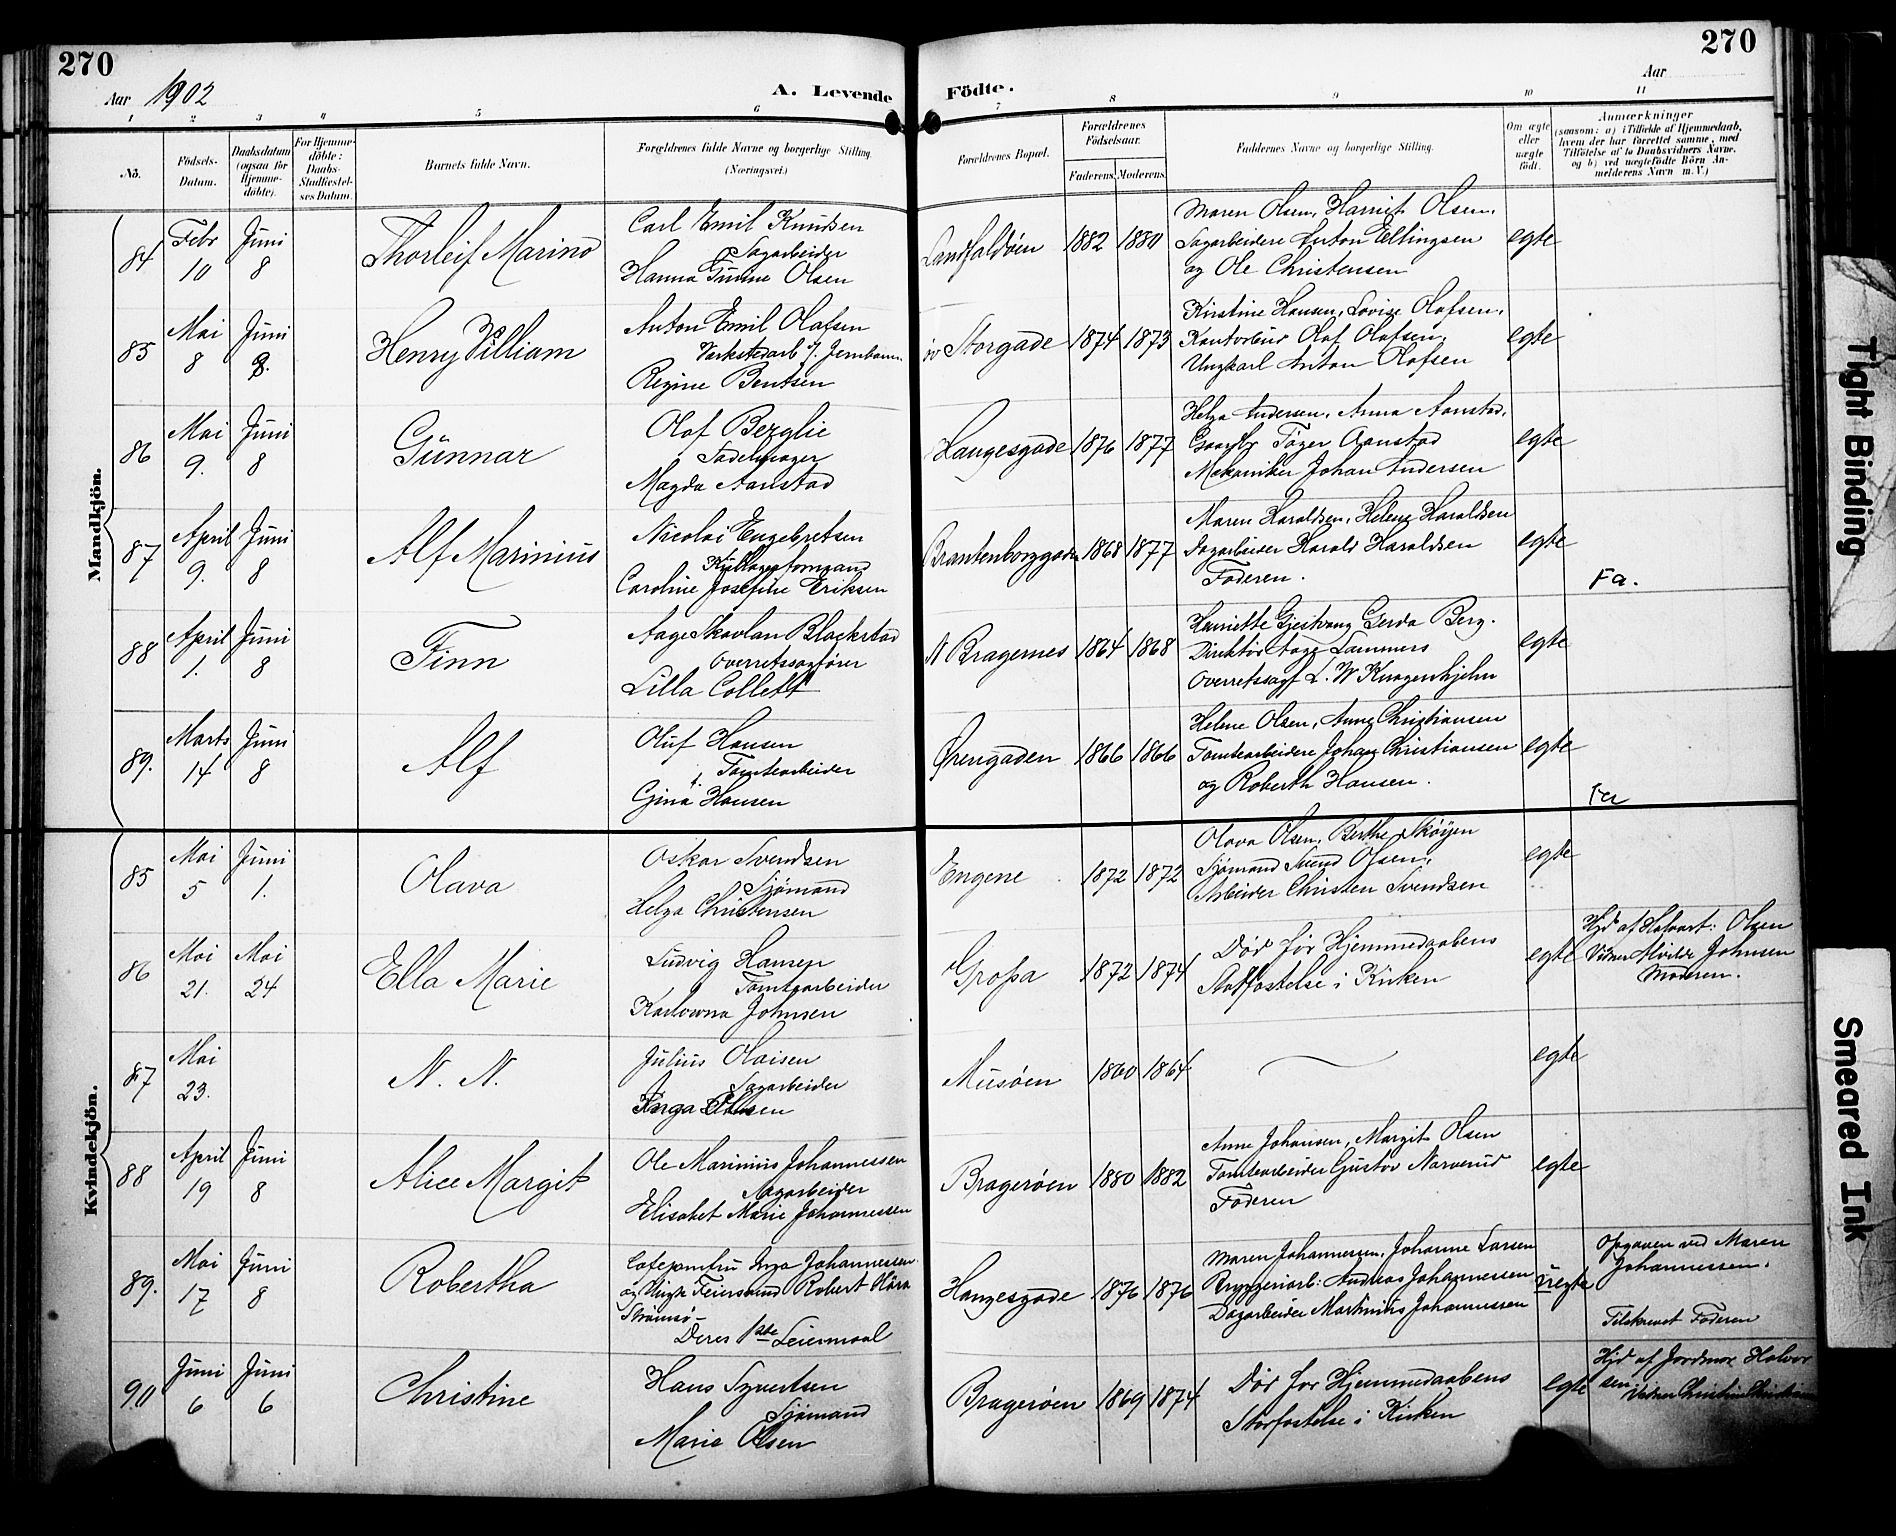 270
270
Aar 1902
A. Levende
Födte.
Aar
1 2 3 4 5 6 7 8 9 10 11
No.
Födsels-
Datum.
Daabsdatum
(ogsaa for
Hjemme-
döbte).
For Hjemme-
döbte:
Daabs-
Stadfæstel-
ses Datum.
Barnets fulde Navn.
Forældrenes fulde Navne og borgerlige Stilling.
(Næringsvei.)
Forældrenes Bopæl.
Forældrenes
Födselsaar.
Faderens. Moderens.
Faddernes Navne og borgerlige Stilling.
Om ægte
eller
uægte
födt.
Anmærkninger
(saasom: a) i Tilfælde af Hjemmedaab,
hvem der har forrettet samme, med
Tilföielse af to Daabsvidners Navne,
og b) ved uægtefödte Börn An-
melderens Navn m. V.)
Mandkjön.
84
Febr
10
Juni
8
Thorleif Marino
Carl Emil Knudsen
Sagarbeider
Hanna Gunine Olsen
Landfaldöen
1882 1880
Maren Olsen, Harriet Olsen,
Sagarbeidere Anton Ellingsen
og Ole Christensen
egte
85
Mai
8
Juni
8.
Henry William
Anton Emil Olafsen
Værkstedarb v/. Jernbanen
Regine Bentsen
öv Storgade
1874 1873
Kirstine Hansen, Lovise Olafsen,
Kontorbud Olof Olafsen,
Ungkarl Anton Olafsen
egte
86
Mai
9.
Juni
8
Gunnar
Olaf Berglie
Sadelmager
Magda Aanstad
Haugesgade
1876 1877
Helga Andersen, Anna Aanstad,
Gaardbr Töger Aanstad
Mekaniker Johan Andersen
egte
87
April
9.
Juni
8
Alf Marinius
Nicolai Engebretsen
Caroline Josefine Eriksen
Brantenborggaden
1868 1877
Maren Haraldsen, Helene Haraldsen
Sagarbeider Harald Haraldsen
Faderen.
egte
Fa.
88
April
1.
Juni
8
Finn
Aage Skavlan Blackstad
Overretssagförer
Lilla Collett
N Bragernes
1864 1868
Henriette Gjestvang Gerda Berg.
Direktör Aage Lammers
Overretssagf L. W Knagenhjelm
egte
89.
Marts
14
Juni
8
Alf
Oluf Hansen
Tomtearbeider
Gina Hansen
Örengaden
1866 1866
Helene Olsen, Anna Christiansen
Tomtearbeidere Johan Christiansen
og Roberth Hansen.
egte
Fa
Kvindekjön.
85
Mai
5
Juni
1.
Olava
Oskar Svendsen
Sjömand
Helga Christensen
Engene
1872 1872
Olava Olsen, Berthe Sköyen
Sjömand Svend Olsen,
Arbeider Christen Svendsen
egte
86
Mai
21.
Mai
24
Ella Marie
Ludvig Hansen
Tomtearbeider
Karlovna Johnsen
Grossa
1872 1874
Död för Hjemmedaabens
Stadfæstelse i Kirken
egte
Hjd af Halvart: Olsen
Vidner Alvilde Johnsen
Moderen.
87
Mai
23.
N. N.
Julius Olaisen
Sagarbeider
Inga Olsen
Musöen
1860 1864
egte
88
April
19
Juni
8
Alice Margit
Ole Marinius Johannessen
Sagarbeider
Elisabet Marie Johannessen
Brageröen
1880 1882
Anne Johansen, Margit Olsen
Tomtearbeider Gustav Narverud
Faderen
egte
89.
Mai
17
Juni
8
Robertha
Cafejomfru Inga Johannessen
og Robert
Strömsö
Deres 1ste Leiermaal
Haugesgade
1876 1876
Maren Johannessen, Johanne Larsen
Bryggeriarb: Andreas Johannessen
Dagarbeider Martinius Johannessen
uegte
Opgaven ved Maren
Johannessen.
Tilskrevet Faderen
90
Juni
6
Juni
6
Christine
Hans Syvertsen
Sjömand
Marie Olsen
Brageröen
1869 1874
Död for Hjemmedaabens
Stadfæstelse i Kirken
egte
Hjd af Jordmor Halvor
sen.
Tight Binding
Smeared Ink